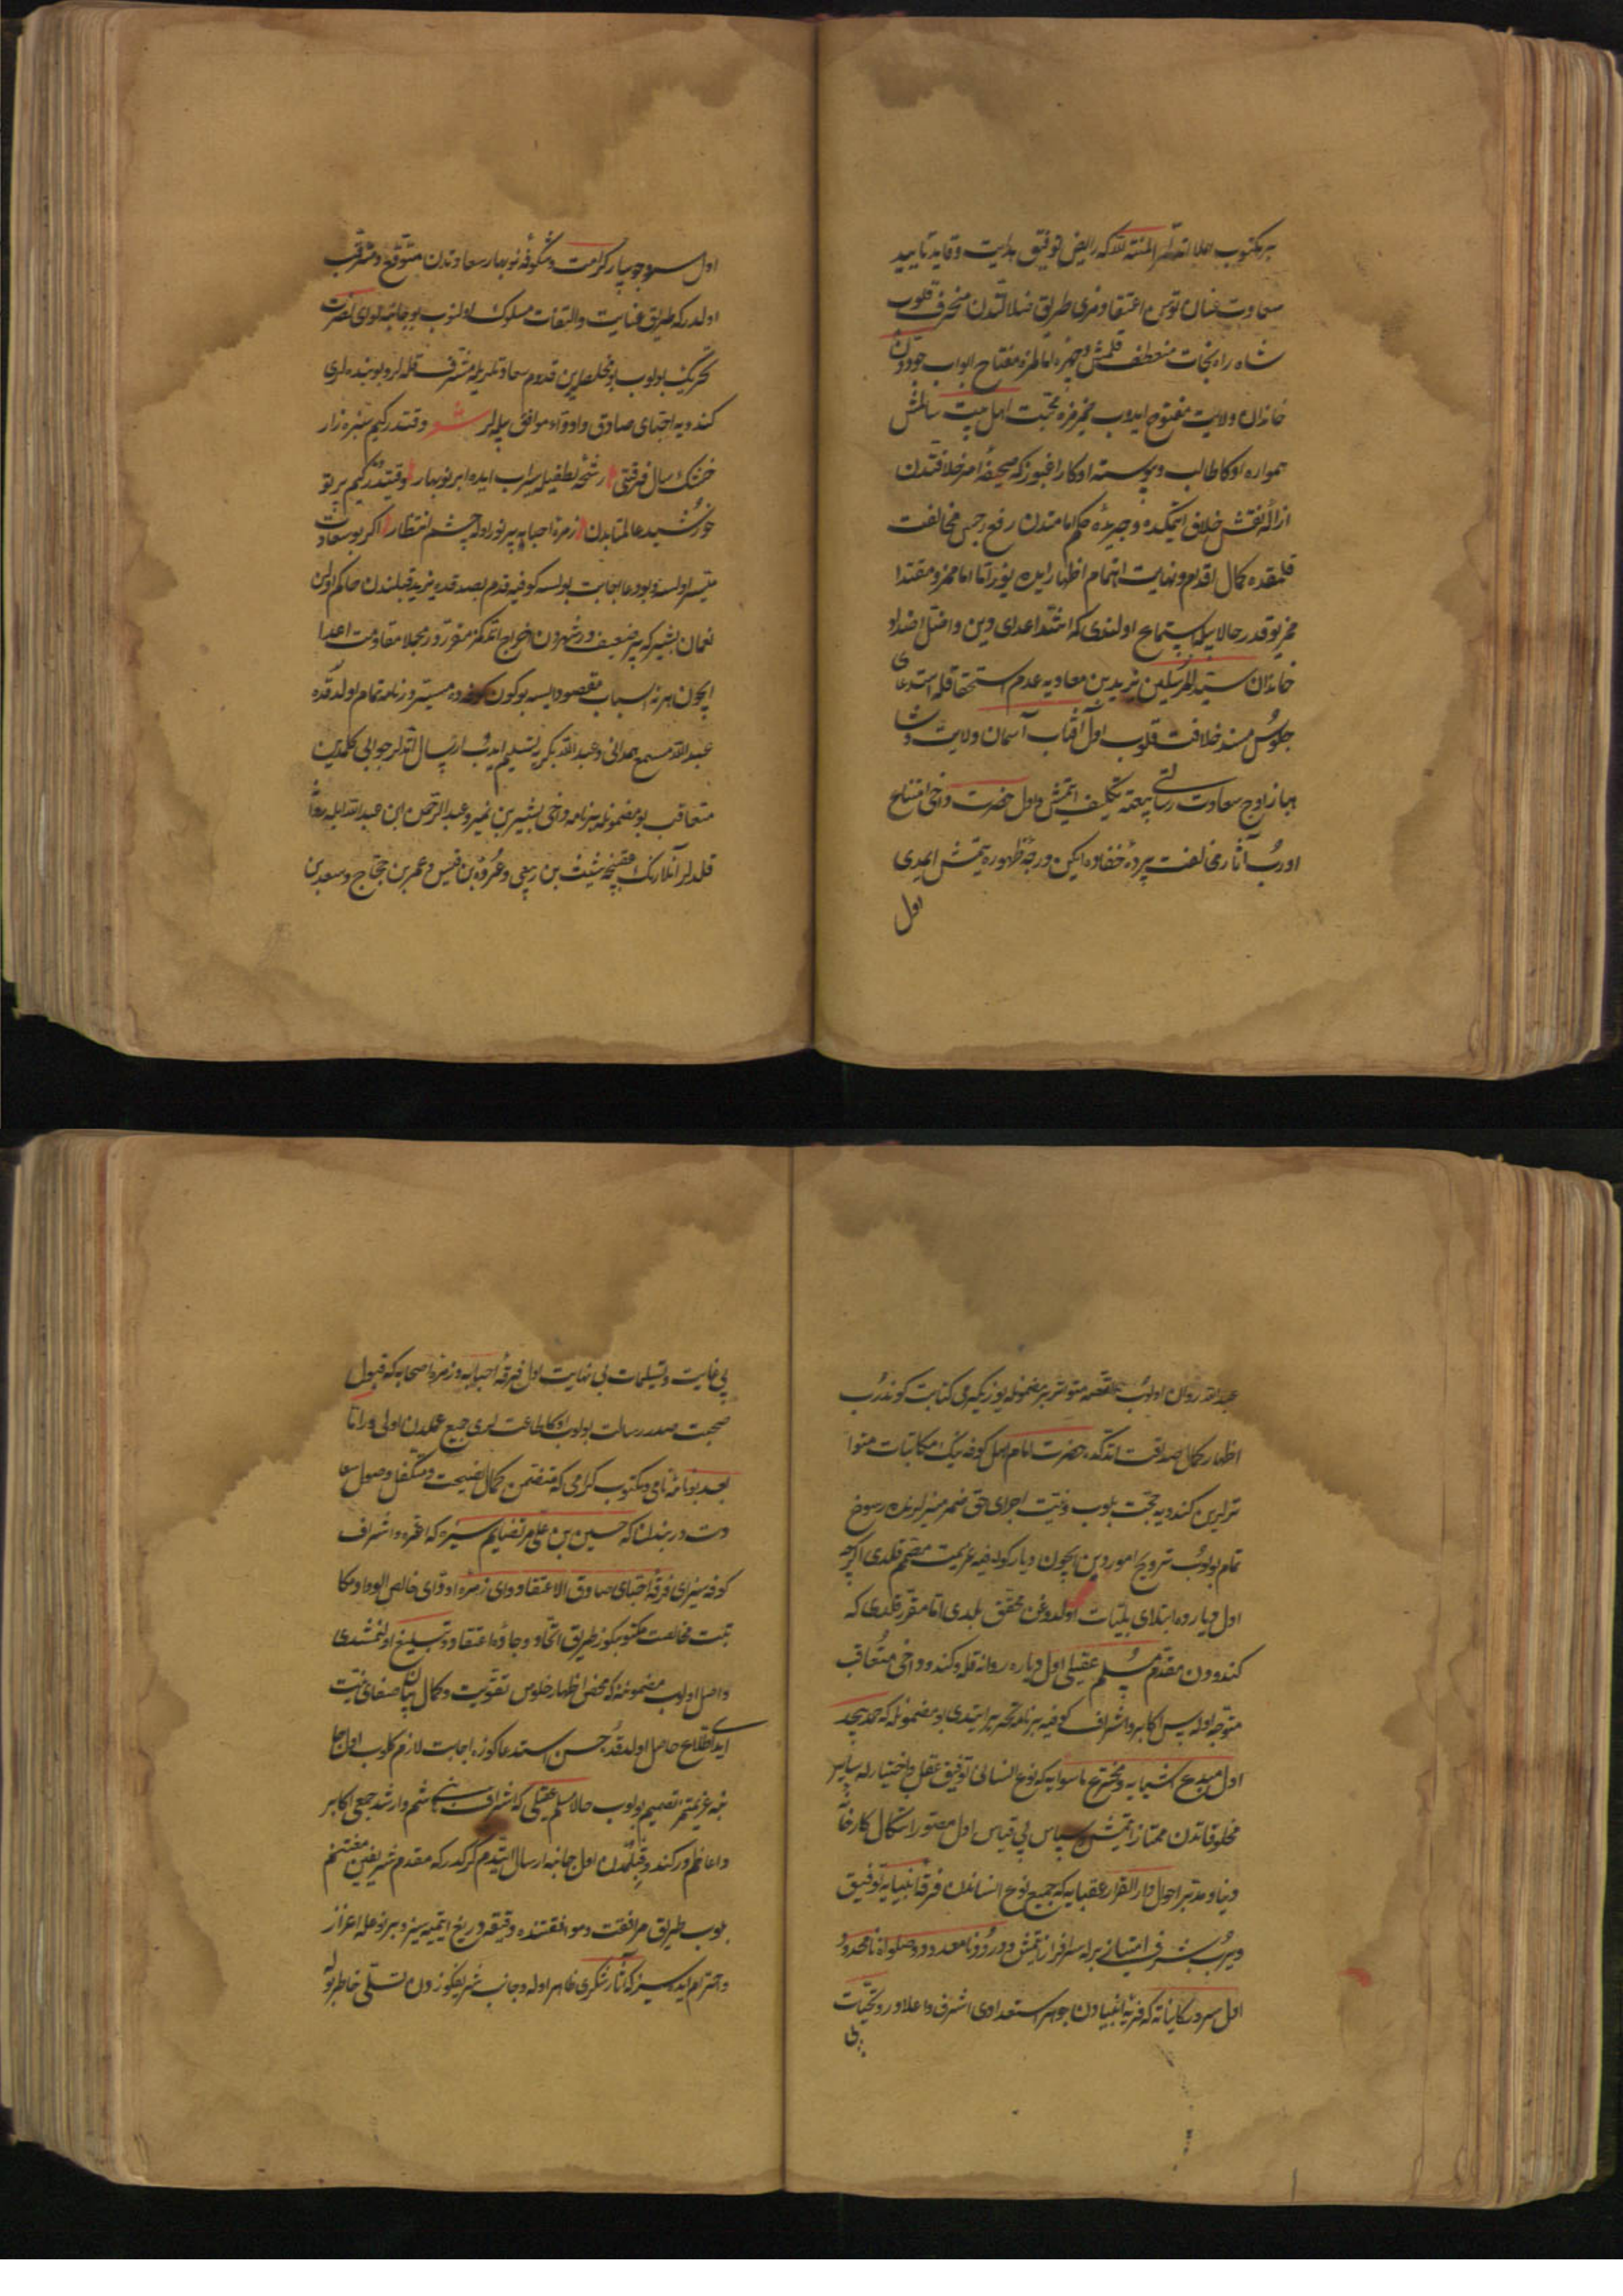 بر مكتوب املا اتدلر المنة لله كه رايض توفيق هدايت و قايد تاييد
سعادت عنان توسن اعتقادمزى طريق ضلالتدن منحرف قلوب
شاه راه نجات منعطف قلمش و چهره امالمزه مفتاح ابواب جودتن
خاندان ولايت مفتوح ايدوب مخبرمزه محبت اهل بيت سالمش
همواره اوكا طالب و پيوسته اوكا راغبوز كه صحيفۀ امر خلافتدن
ازالۀ نقش خلاف ايتمكده و جريدۀ حكم امامتدن رفع رجس مخالفت
قلمقده كمال اقدام و نهايت اهتمام اظهار ايدن يوز اما امامز و مقتدا
مز بو قدر حالا بيله استماع اولندى كه اشد اعداى دين و افضل اضداد
خاندان سيد المرسلين يزيد بن معاويه عدم استحقاقله استدعاى
جلوس مسند خلافت قلوب اول آفتاب آسمان ولايت و شا
هباز اوج سعادت رسالتى بيعته تكليف ايتمش و اول حضرت دخى امتناع
اوروب آثار مخالفت پردۀ خفاده ايكن درجۀ ظهوره يتمش ايمدى
اول
اول سرو جويبار كرامت و شكوفۀ نوبهار سعادتدن متوقع و مترقب
اولدر كه طريق عنايت و التفات مسلوك اولنوب بو جانبه لواى نصرت
تحريك بولوب بو مخلصلرين قدوم سعادتلريله مشرف قله لر و بو بنده لرى
كندويه احباى صادق و اودّاء موافق بيله لر شعر وقتدر كيم سبزه زار
خشك سال فرقتى رشحۀ لطفيله سيراب ايده ابر نوبهار وقتيدر كيم پرتو
خورشيد عالمتابدن زمرۀ احبابه پر نور اوله چشم انتظار اكر بو سعادت
ميسر اولسه و بو دعا اجابت بولسه كوفيه قدم بصدقده يزيد قبلندن حاكم اولان
نعمان بشير كه پير ضعيفدر شهردن اخراج اتمك مقرردر مجلا مقاومت اعدا
ايچون هر نه اسباب مقصود ايسه بو كون كوفه ده ميسردر نامه تمام اولدقده
عبد الله مسمع همدانى و عبد الله بكريه تسليم ايدوب ارسال اتدلر جوابى كلمدين
متعاقب بو مضمونله بر نامه دخى بشير بن نمير و عبد الرحمن ابن عبد الله ايله روان
قلدلر آنلارنك عقبنجه شيث بن ربعى و عروه بن قيس و عمر بن حجاج و سعد بن
عبد الله روان اولوب القصه متواتر بر مضمونله يوز يكرمى كتابت كوندروب
اظهار كمال صداقت اتدكده حضرت امام اهل كوفه نيك مكاتبات متوا
ترلرين كندويه حجت بلوب و نيت اجراى حق ضمير منيرلرنده رسوخ
تمام بولوب ترويج امور دين ايچون ديار كوفيه عزيمت مصمم قلدى اكرچه
اول ديارده ابتلاى بليات اولدوغن محقق بلدى اما مقرر قلدى كه
كندودن مقدم مسلم عقيلى اول دياره روانه قله و كندو دخى متعاقب
متوجه اوله پس اكابر و اشراف كوفيه بر نامه تحرير ايتدى بو مضمونله كه حمد بيحد
اول مبدع اشيايه و مخترع ماسوايه كه نوع انسانى توفيق عقل و اختيارله ساير
مخلوقاتدن ممتاز ايتمش و سپاس بى قياس اول مصور اشكال كارخانۀ
دنيا و مدبر احوال دار القرار عقبايه كه جميع نوع انساندن فرقۀ انبيايه توفيق
ويروب شرف امتيازله سرافراز ايتمش و درود نامعدود و صلواة نامحدود
اول سرور كايناته كه فرقۀ انبيادن جوهر استعدادى اشرف و اعلادر و تحيات
بى
بى غايت و تسليمات بى نهايت اول فرقۀ احبابه و زمرۀ اصحابه كه قبول
صحبت صدر رسالت بولوب اوكا طاعت لرى جميع عملدن اولى در اما
بعد بو نامۀ نامى و مكتوب كرامى كه متضمن كمال نصيحت و متكفل وصول سعا
دت در بندن كه حسين بن على مرتضايم سيزه كه اعزه و اشراف
كوفه سيز اى فرقۀ احباى صادق الاعتقاد و اى زمرۀ اودّاى خالص الوداد مكا
تبت مخالصت مكتوبكوز طريق اتحاد و جادۀ اعتقاددن تبليغ اولنمشدى
واصل اولوب مضمونينه كه محض اظهار خلوص تقويت و كمال بيان صفاى نيت
ايدى اطلاع حاصل اولدقده حسن استدعاكوزه اجابت لازم كلوب اول جا
نبه عزيمتم تصميم بولوب حالا مسلم عقيلى كه اشراف بنى هاشم و ارشد جمع اكابر
و اعاظم در كندو قبلمدن اول جانبه ارسال ايتدم كركدر كه مقدم شريفين مغتنم
بلوب طريق مرافقت و موافقتنده دقيقه دريغ ايتميه سيز و بر نوعله اعزاز
و احترام ايده سيز كه آثار شكرى ظاهر اوله و جانب شريفكوزدن تسلى خاطر بوله